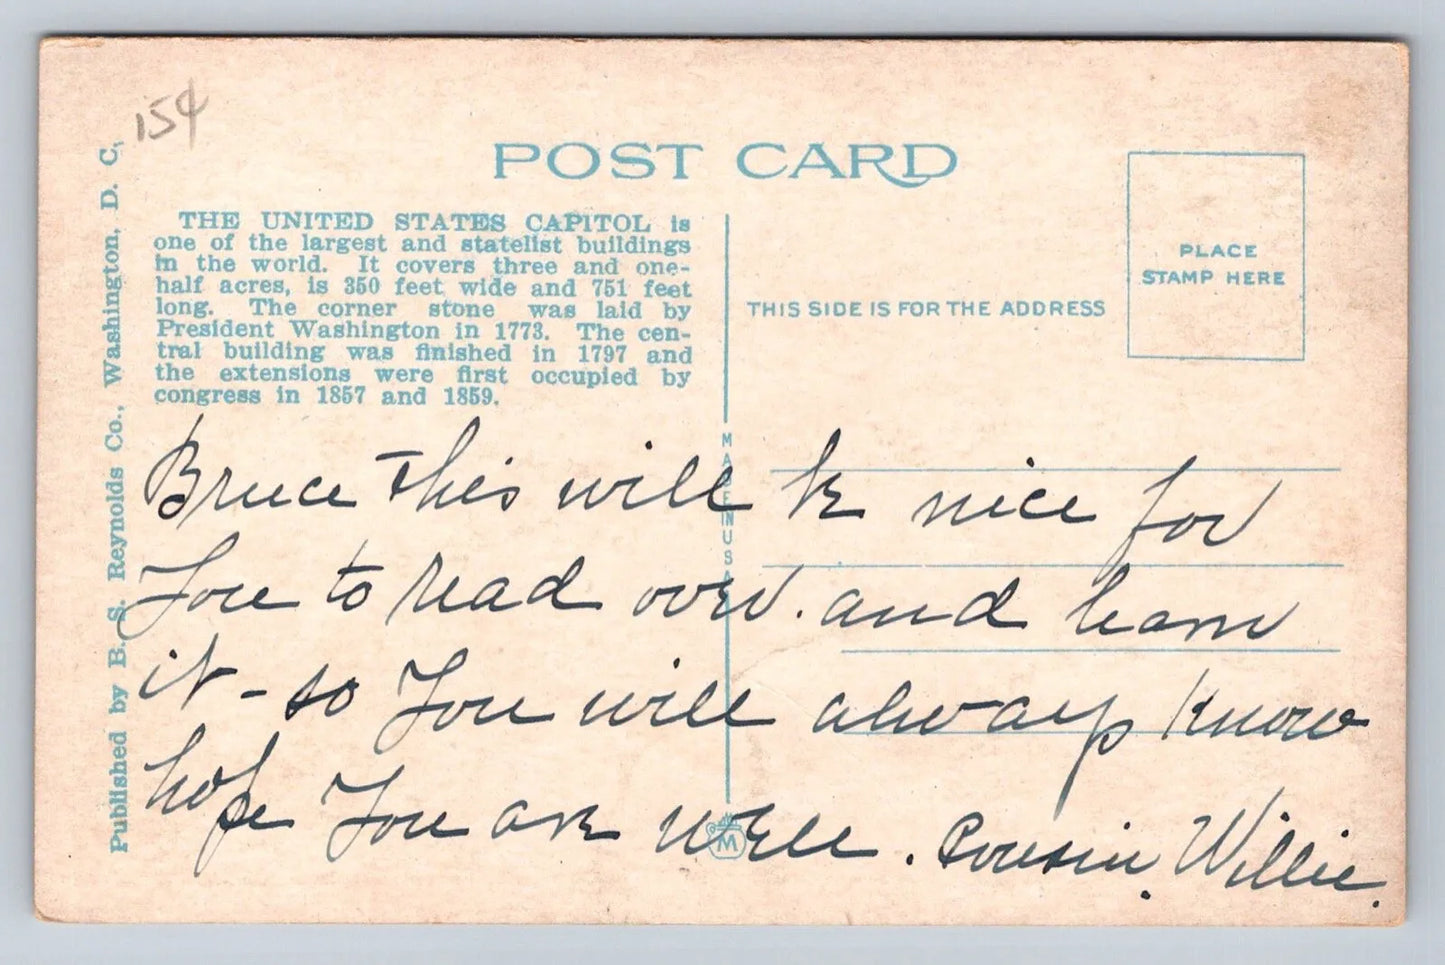 154
POST CARD
THE UNITED STATES CAPITOL is
one of the largest and stateliest buildings
in the world. It covers three and one-
half acres, is 350 feet wide and 751 feet
long. The corner stone was laid by
President Washington in 1773. The cen-
tral building was finished in 1797 and
the extensions were first occupied by
congress in 1857 and 1859.
THIS SIDE IS FOR THE ADDRESS
PLACE
STAMP HERE
Published by B. S. Reynolds Co., Washington, D. C.
MADE IN USA
Bruce This will be nice for
You to read over. and learn
it - so You will always Know
hope You are well. Cousin. Willie.
M